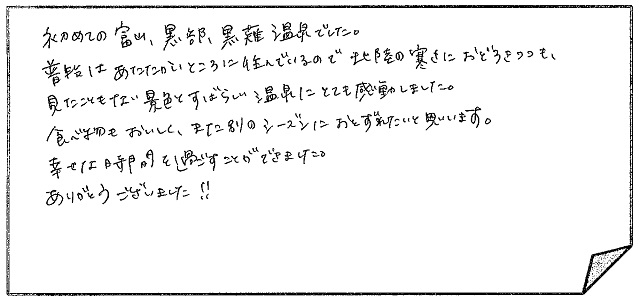 初めての富山、黒部、黒薙温泉でした。
普段はあたたかいところに住んでいるので北陸の寒さにおどろきつつも、
見たこともない景色とすばらしい温泉にとても感動しました。
食べ物もおいしく、また別のシーズンにおとずれたいと思います。
幸せな時間を過ごすことができました。
ありがとうございました!!